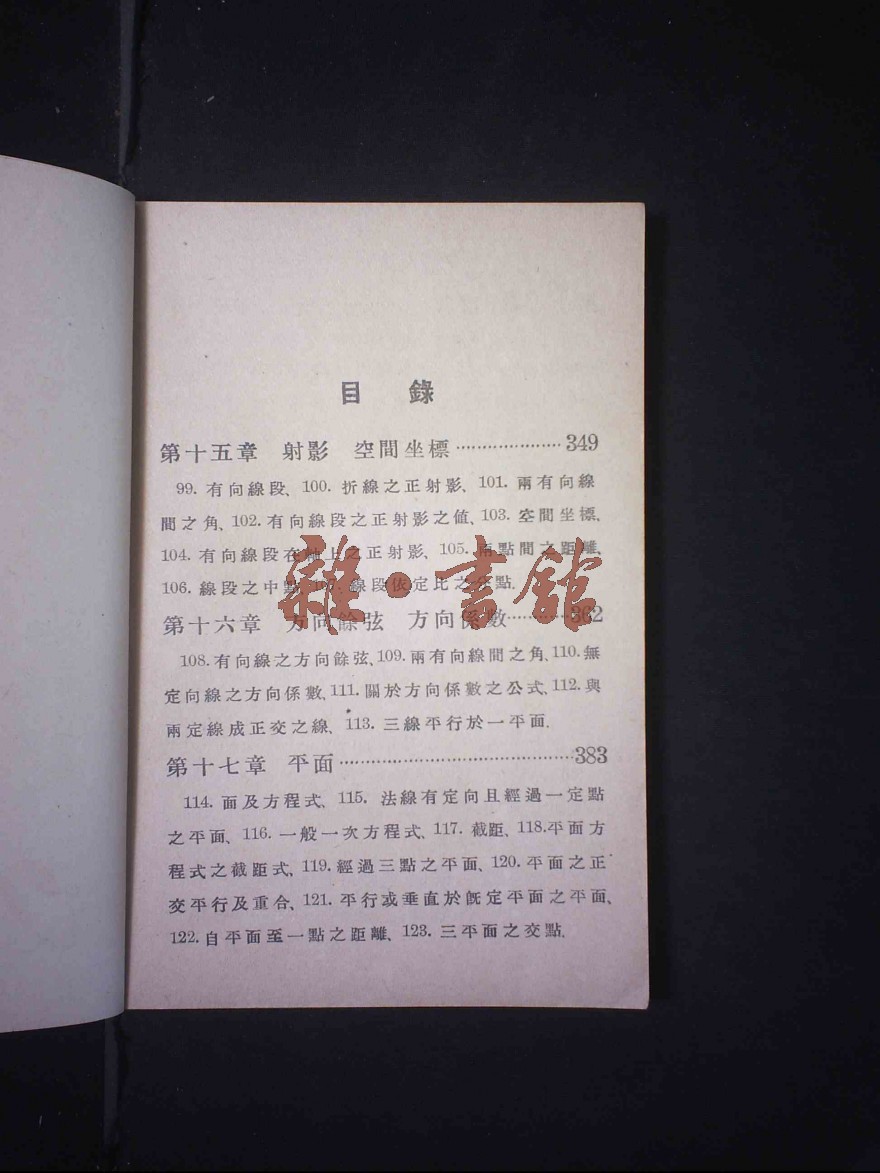 目 錄
第十五章 射影 空間坐標 ···················· 349
99. 有向線段、100. 折線之正射影、101. 兩有向線
間之角、102. 有向線段之正射影之值、103. 空間坐標、
104. 有向線段在軸上之正射影、105. 兩點間之距離、
106. 線段之中點、107. 線段依定比之分點.
第十六章 方向餘弦 方向係數 ············ 362
108. 有向線之方向餘弦、109. 兩有向線間之角、110. 無
定向線之方向係數、111. 關於方向係數之公式、112. 與
兩定線成正交之線、113. 三線平行於一平面.
第十七章 平面 ·········································· 383
114. 面及方程式、115. 法線有定向且經過一定點
之平面、116. 一般一次方程式、117. 截距、118. 平面方
程式之截距式、119. 經過三點之平面、120. 平面之正
交平行及重合、121. 平行或垂直於旣定平面之平面、
122. 自平面至一點之距離、123. 三平面之交點.
雜·書館